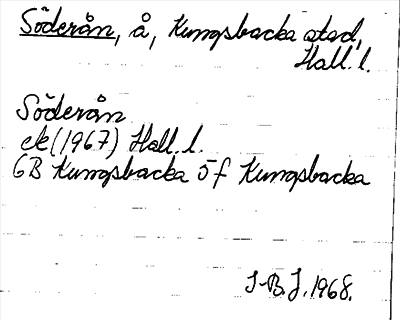 Söderån, å, Kungsbacka stad,
Hall. l.
Söderån
ek (1967) Hall. l.
6B Kungsbacka 5f Kungsbacka
J.B.J. 1968.